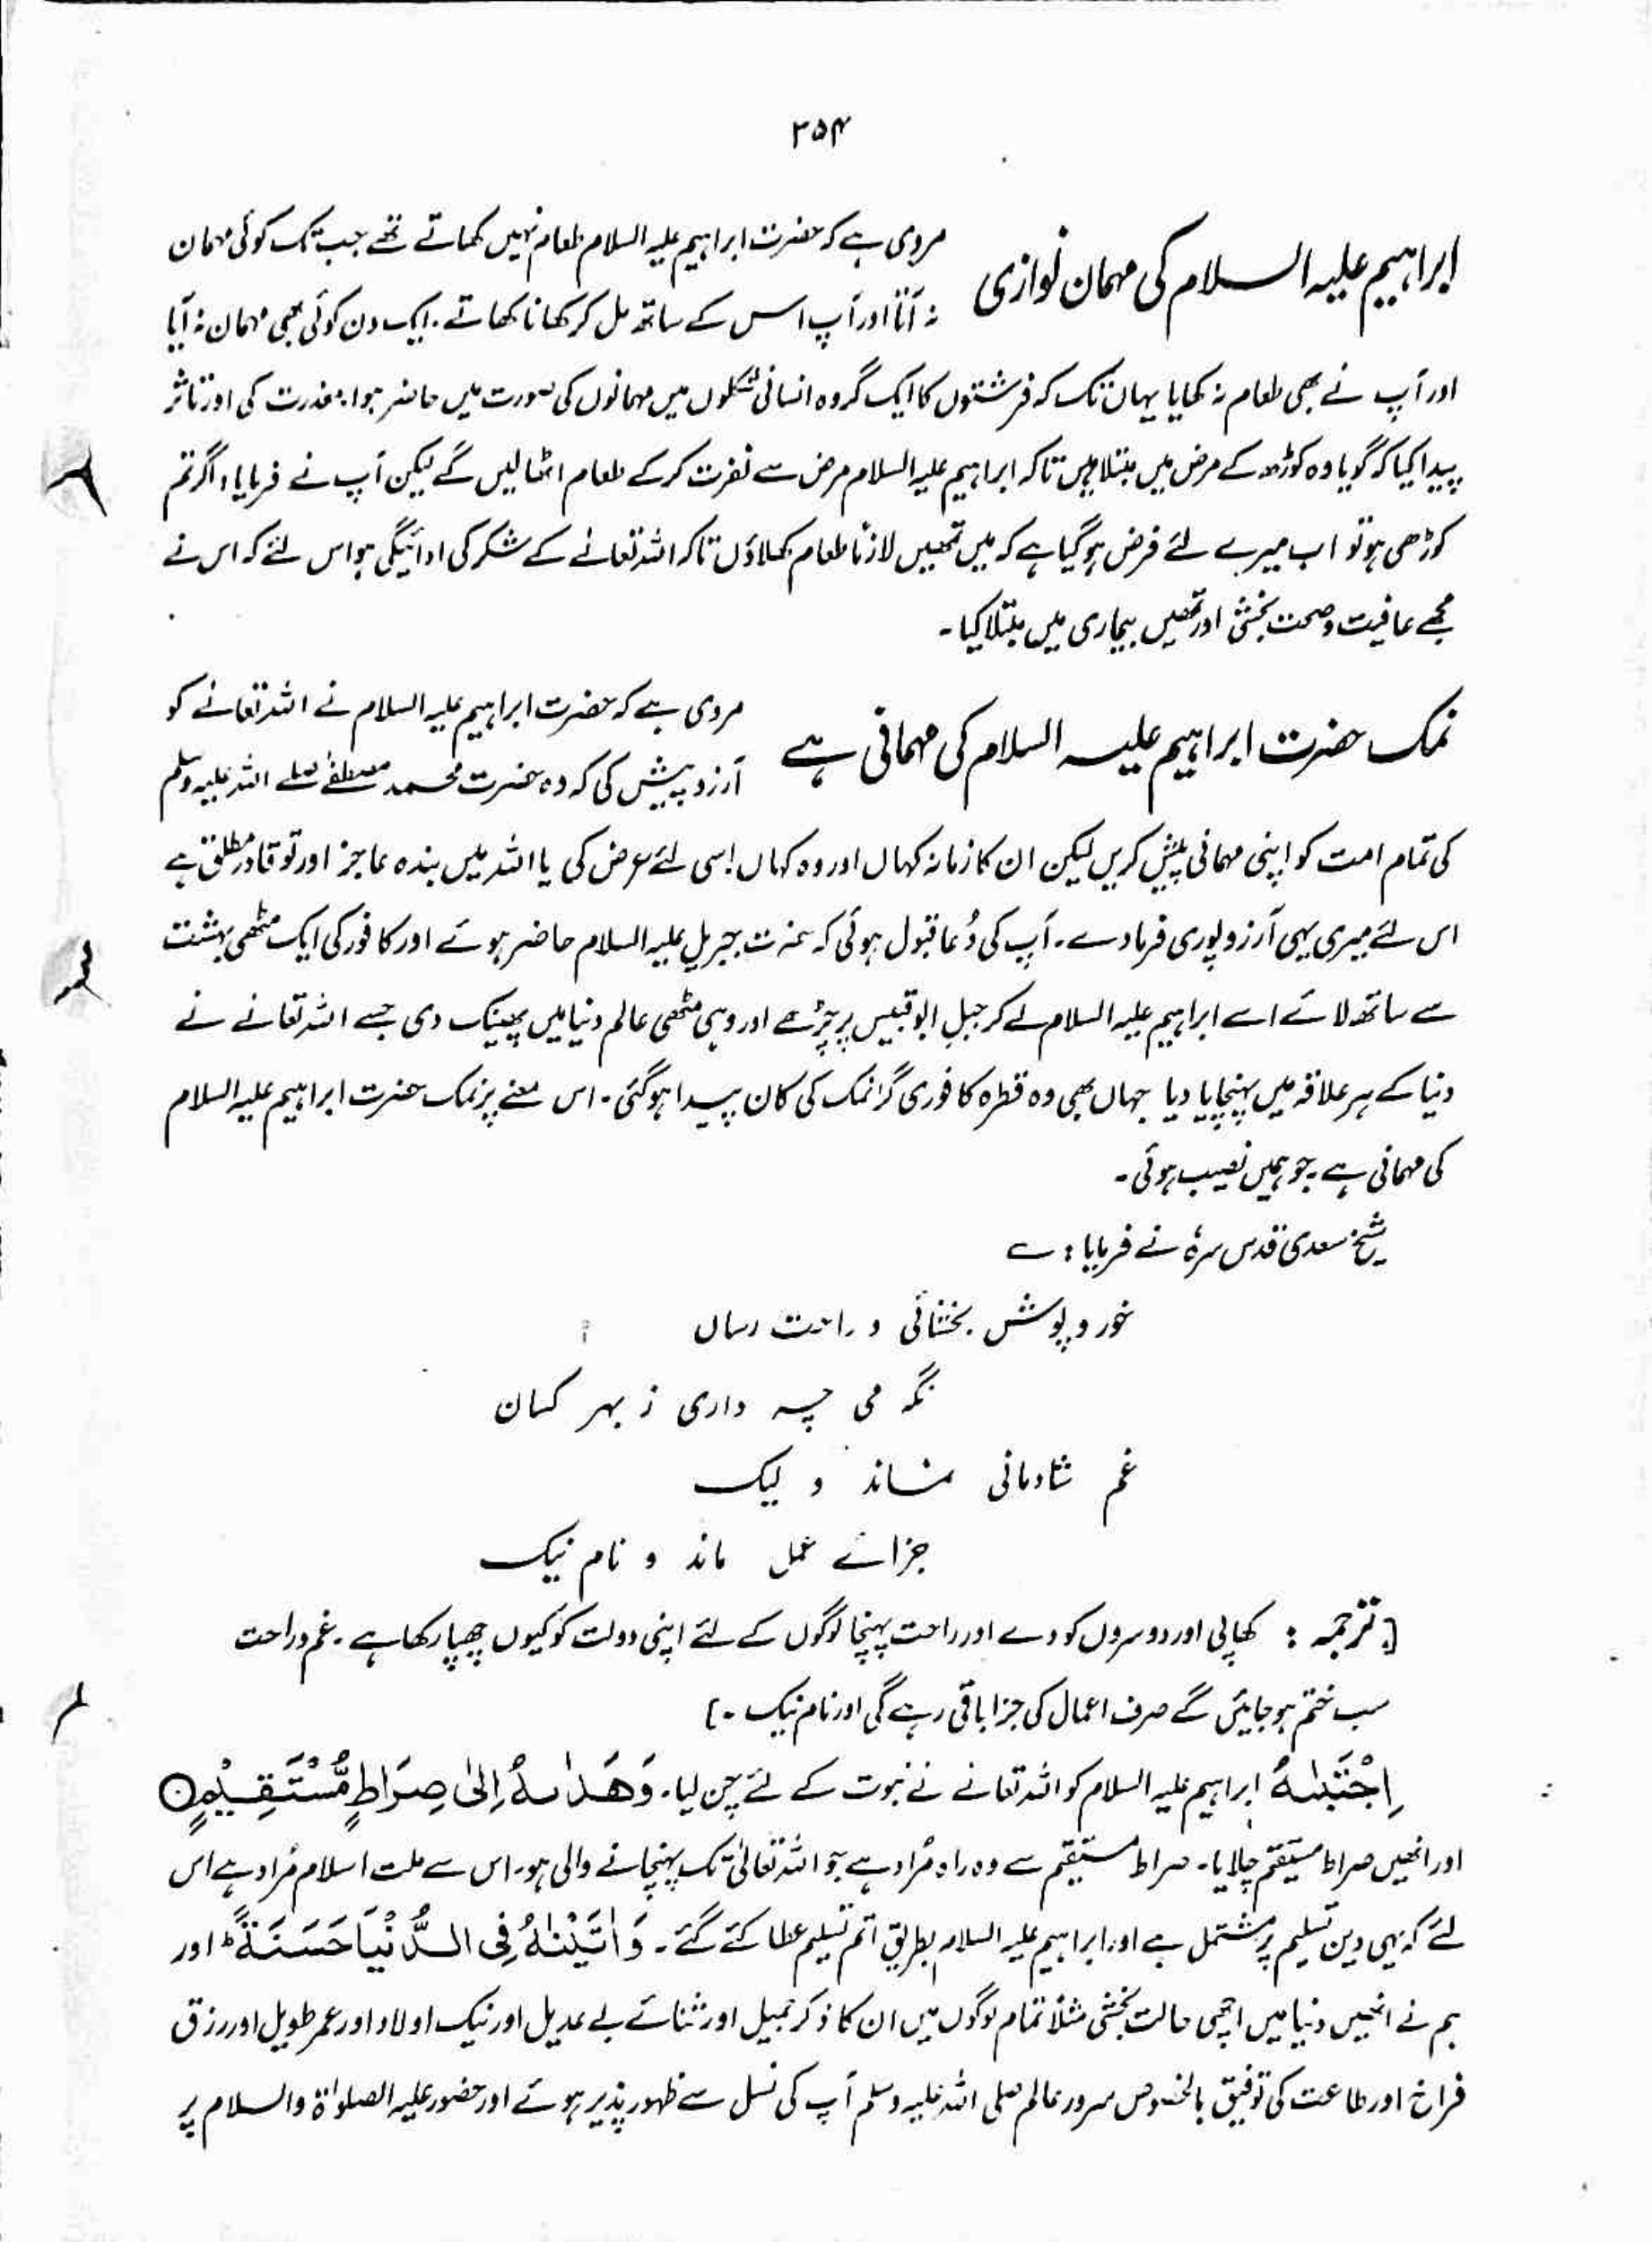 ۳۵۴
ابراہیم علیہ السلام کی مہمان نوازی
مروی ہے کہ حضرت ابراہیم علیہ السلام طعام نہیں کھاتے تھے جب تک کوئی مہمان
نہ آتا اور آپ اس کے ساتھ مل کر کھانا کھاتے۔ ایک دن کوئی بھی مہمان نہ آیا
اور آپ نے بھی طعام نہ کھایا یہاں تک کہ فرشتوں کا ایک گروہ انسانی شکلوں میں مہمانوں کی صورت میں حاضر ہوا۔ معذرت کی اور تاثر
پیدا کیا کہ گویا وہ کوڑھ کے مرض میں مبتلا ہیں تاکہ ابراہیم علیہ السلام مرض سے نفرت کر کے طعام اٹھا لیں گے لیکن آپ نے فرمایا، اگر تم
کوڑھی ہو تو اب میرے لئے فرض ہو گیا ہے کہ میں تمھیں لازماً طعام کھلاؤں تاکہ اللہ تعالےٰ کے شکر کی ادائیگی ہو اس لئے کہ اس نے
مجھے عافیت و صحت بخشی اور تمھیں بیماری میں مبتلا کیا۔
نمک حضرت ابراہیم علیہ السلام کی مہمانی ہے
مروی ہے کہ حضرت ابراہیم علیہ السلام نے اللہ تعالےٰ کو
آرزو پیش کی کہ وہ حضرت محمد مصطفےٰ صلے اللہ علیہ وسلم
کی تمام امت کو اپنی مہمانی پیش کریں لیکن ان کا زمانہ کہاں اور وہ کہاں اسی لئے عرض کی یا اللہ میں بندہ عاجز اور تو قادر مطلق ہے
اس لئے میری یہی آرزو پوری فرما دے۔ آپ کی دُعا قبول ہوئی کہ حضرت جبریل علیہ السلام حاضر ہوئے اور کافور کی ایک مٹھی بہشت
سے ساتھ لائے اسے ابراہیم علیہ السلام لے کر جبل ابوقبیس پر چڑھے اور وہی مٹھی عالم دنیا میں پھینک دی جسے اللہ تعالےٰ نے
دنیا کے ہر علاقہ میں پہنچایا دیا جہاں بھی وہ قطرہ کافوری گرا نمک کی کان پیدا ہو گئی۔ اس معنے پر نمک حضرت ابراہیم علیہ السلام
کی مہمانی ہے۔ جو ہمیں نصیب ہوئی۔
شیخ سعدی قدس سرہٗ نے فرمایا : ؎
خور و پوش بخشائی و راحت رساں
نگہ می چہ داری ز بہر کسان
غم شادمانی نماند و لیک
جزائے عمل ماند و نام نیک
[ترجمہ : کھا پی اور دوسروں کو دے اور راحت پہنچا لوگوں کے لئے اپنی دولت کو کیوں چھپا رکھا ہے۔ غم و راحت
سب ختم ہو جائیں گے صرف اعمال کی جزا باقی رہے گی اور نام نیک۔]
اِجْتَبٰىهُ ابراہیم علیہ السلام کو اللہ تعالےٰ نے نبوت کے لئے چن لیا۔ وَهَدٰىهُ اِلٰى صِرَاطٍ مُّسْتَقِيْمٍ ○
اور انھیں صراط مستقیم چلایا۔ صراط مستقیم سے وہ راہ مُراد ہے جو اللہ تعالیٰ تک پہنچانے والی ہو۔ اس سے ملت اسلام مُراد ہے اس
لئے کہ یہی دین تسلیم پر مشتمل ہے اور ابراہیم علیہ السلام بطریق اتم تسلیم عطا کئے گئے۔ وَاٰتَيْنٰهُ فِى الدُّنْيَا حَسَنَةً ؕ اور
ہم نے انھیں دنیا میں اچھی حالت بخشی مثلاً تمام لوگوں میں ان کا ذکر جمیل اور ثنائے بے عدیل اور نیک اولاد اور عمر طویل اور رزق
فراخ اور طاعت کی توفیق بالخصوص سرور عالم صلی اللہ علیہ وسلم آپ کی نسل سے ظہور پذیر ہوئے اور حضور علیہ الصلوٰۃ والسلام پر